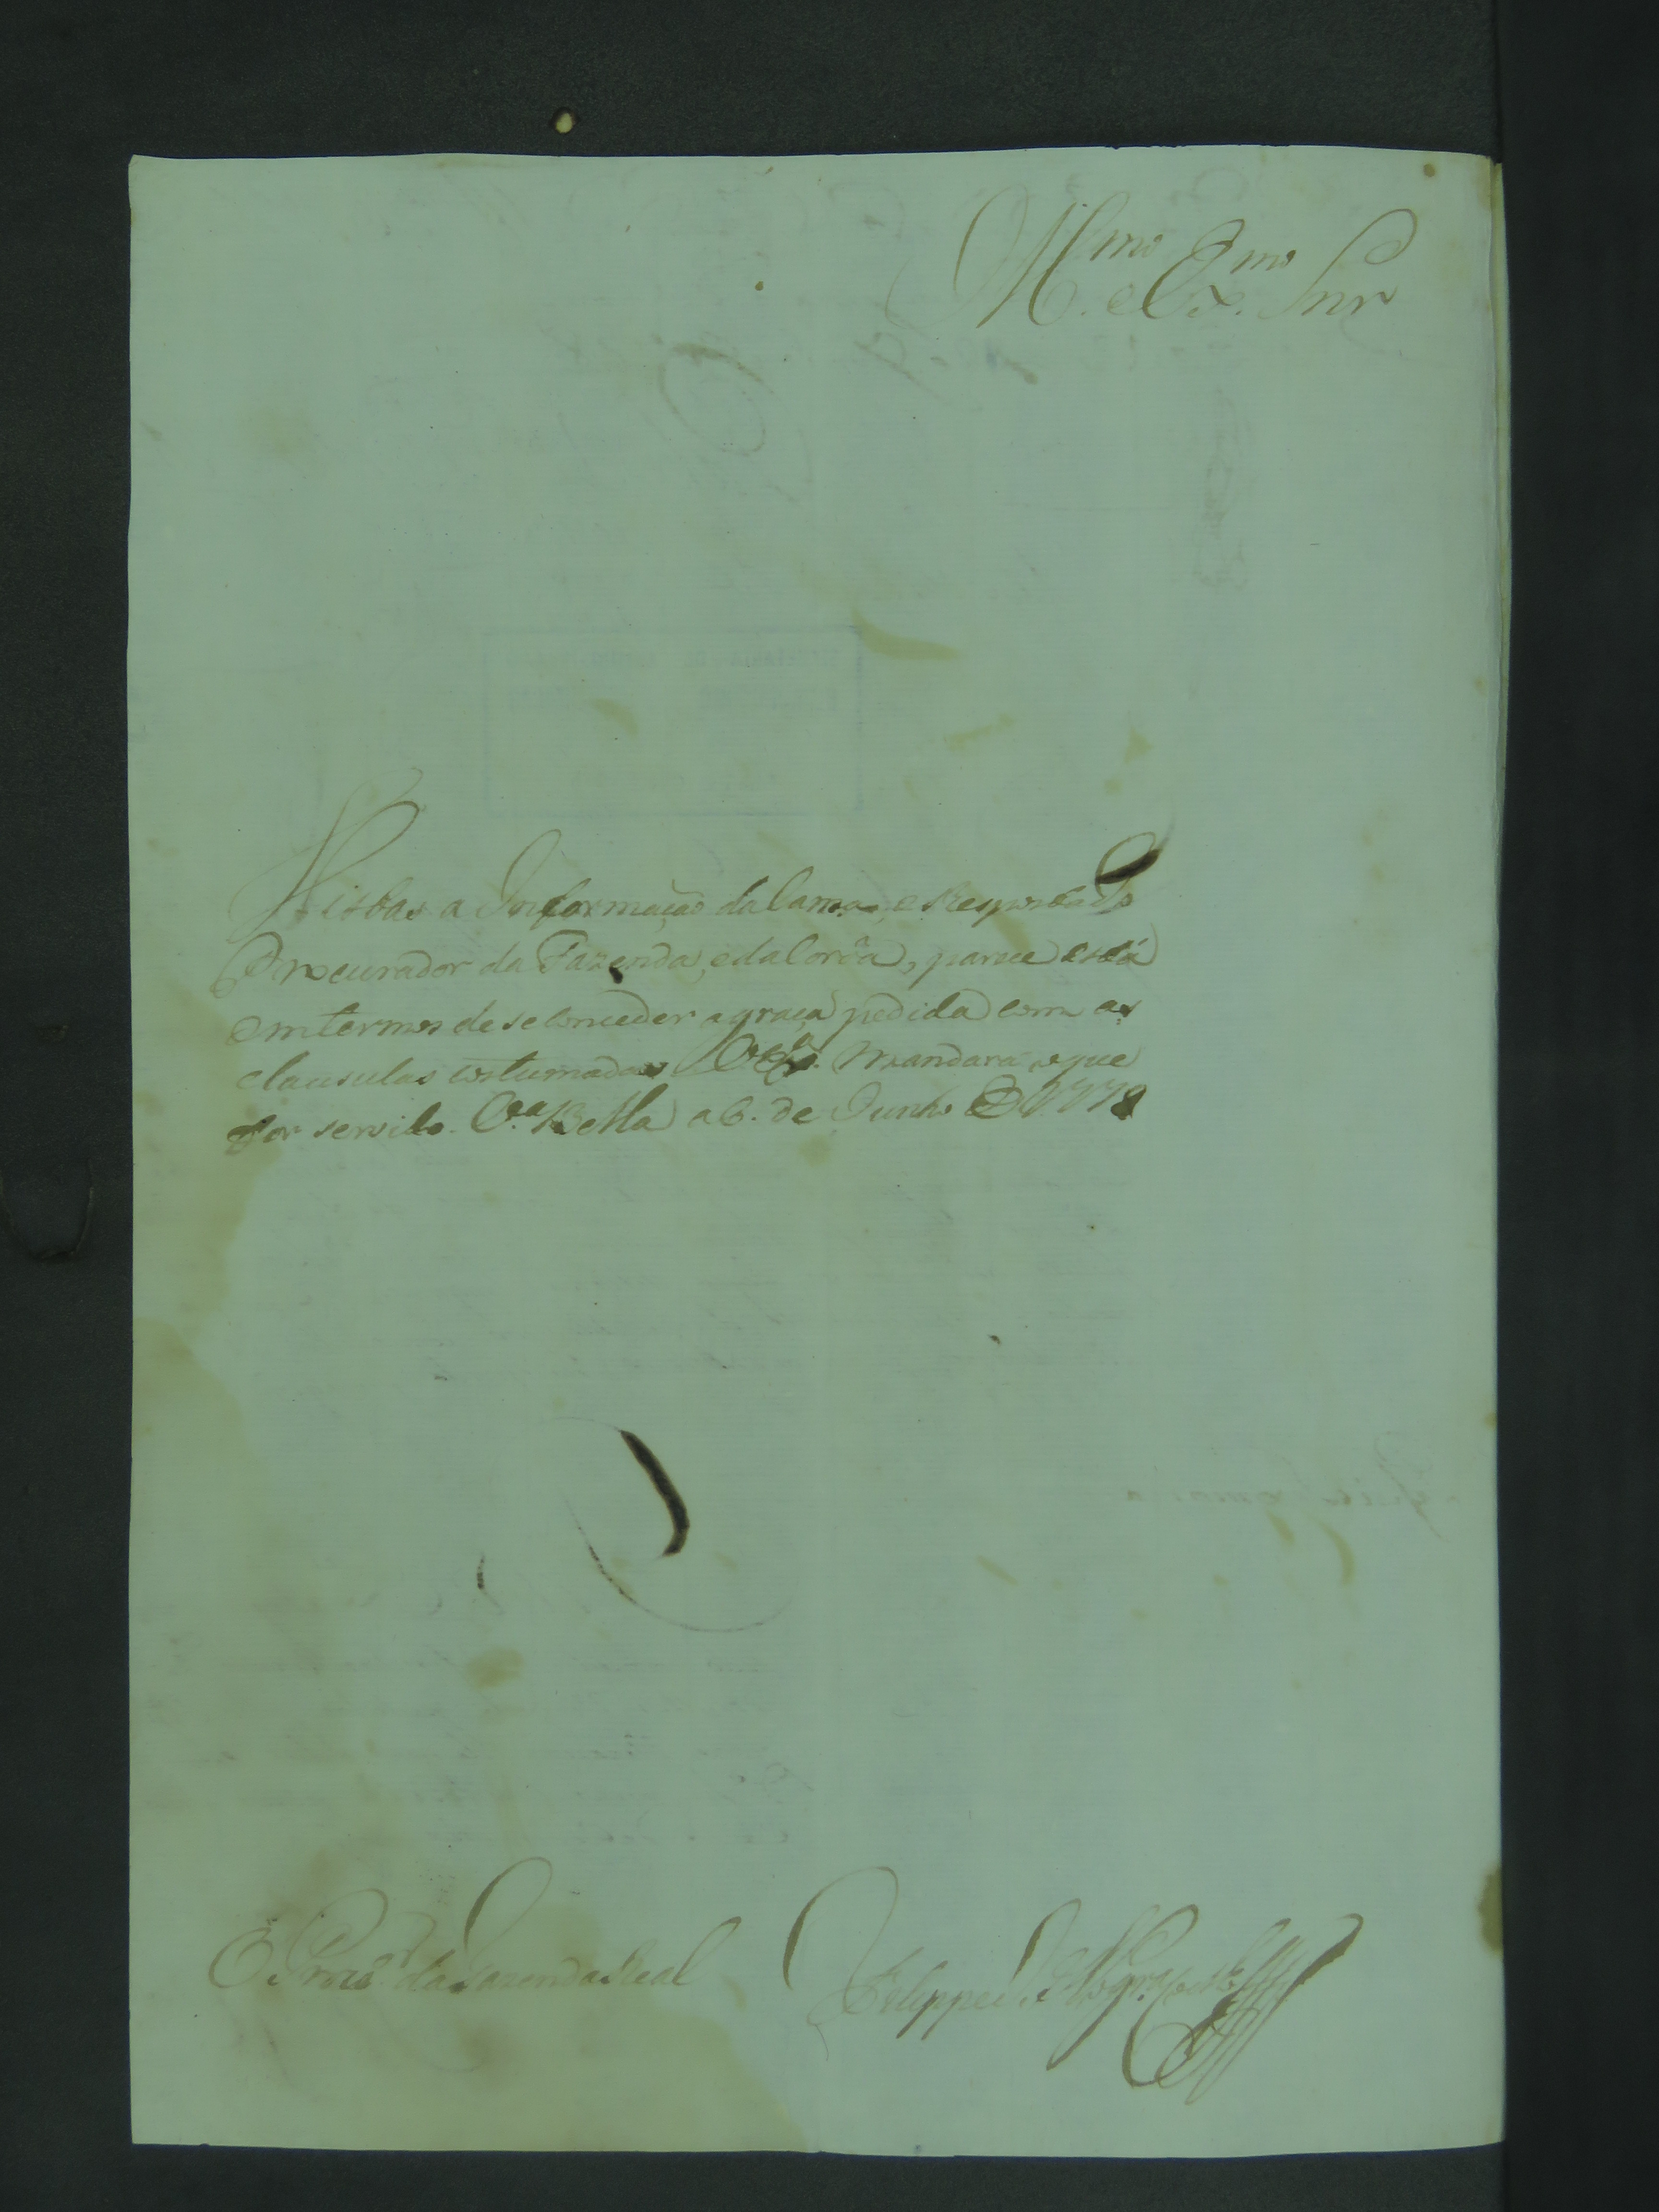 Illmo. e Exmo. Snr
Vistas a Informação da Camara, e Resposta do
Procurador da Fazenda, e da Corôa, parece está
em termos de se conceder a graça pedida com as
clausulas costumadas VEx.ª mandará o que
for servido. V.ª Bella a 6. de Junho D 1778
O Prov.or da Fazenda Real Felippe Joze Nogr.ª Coelho